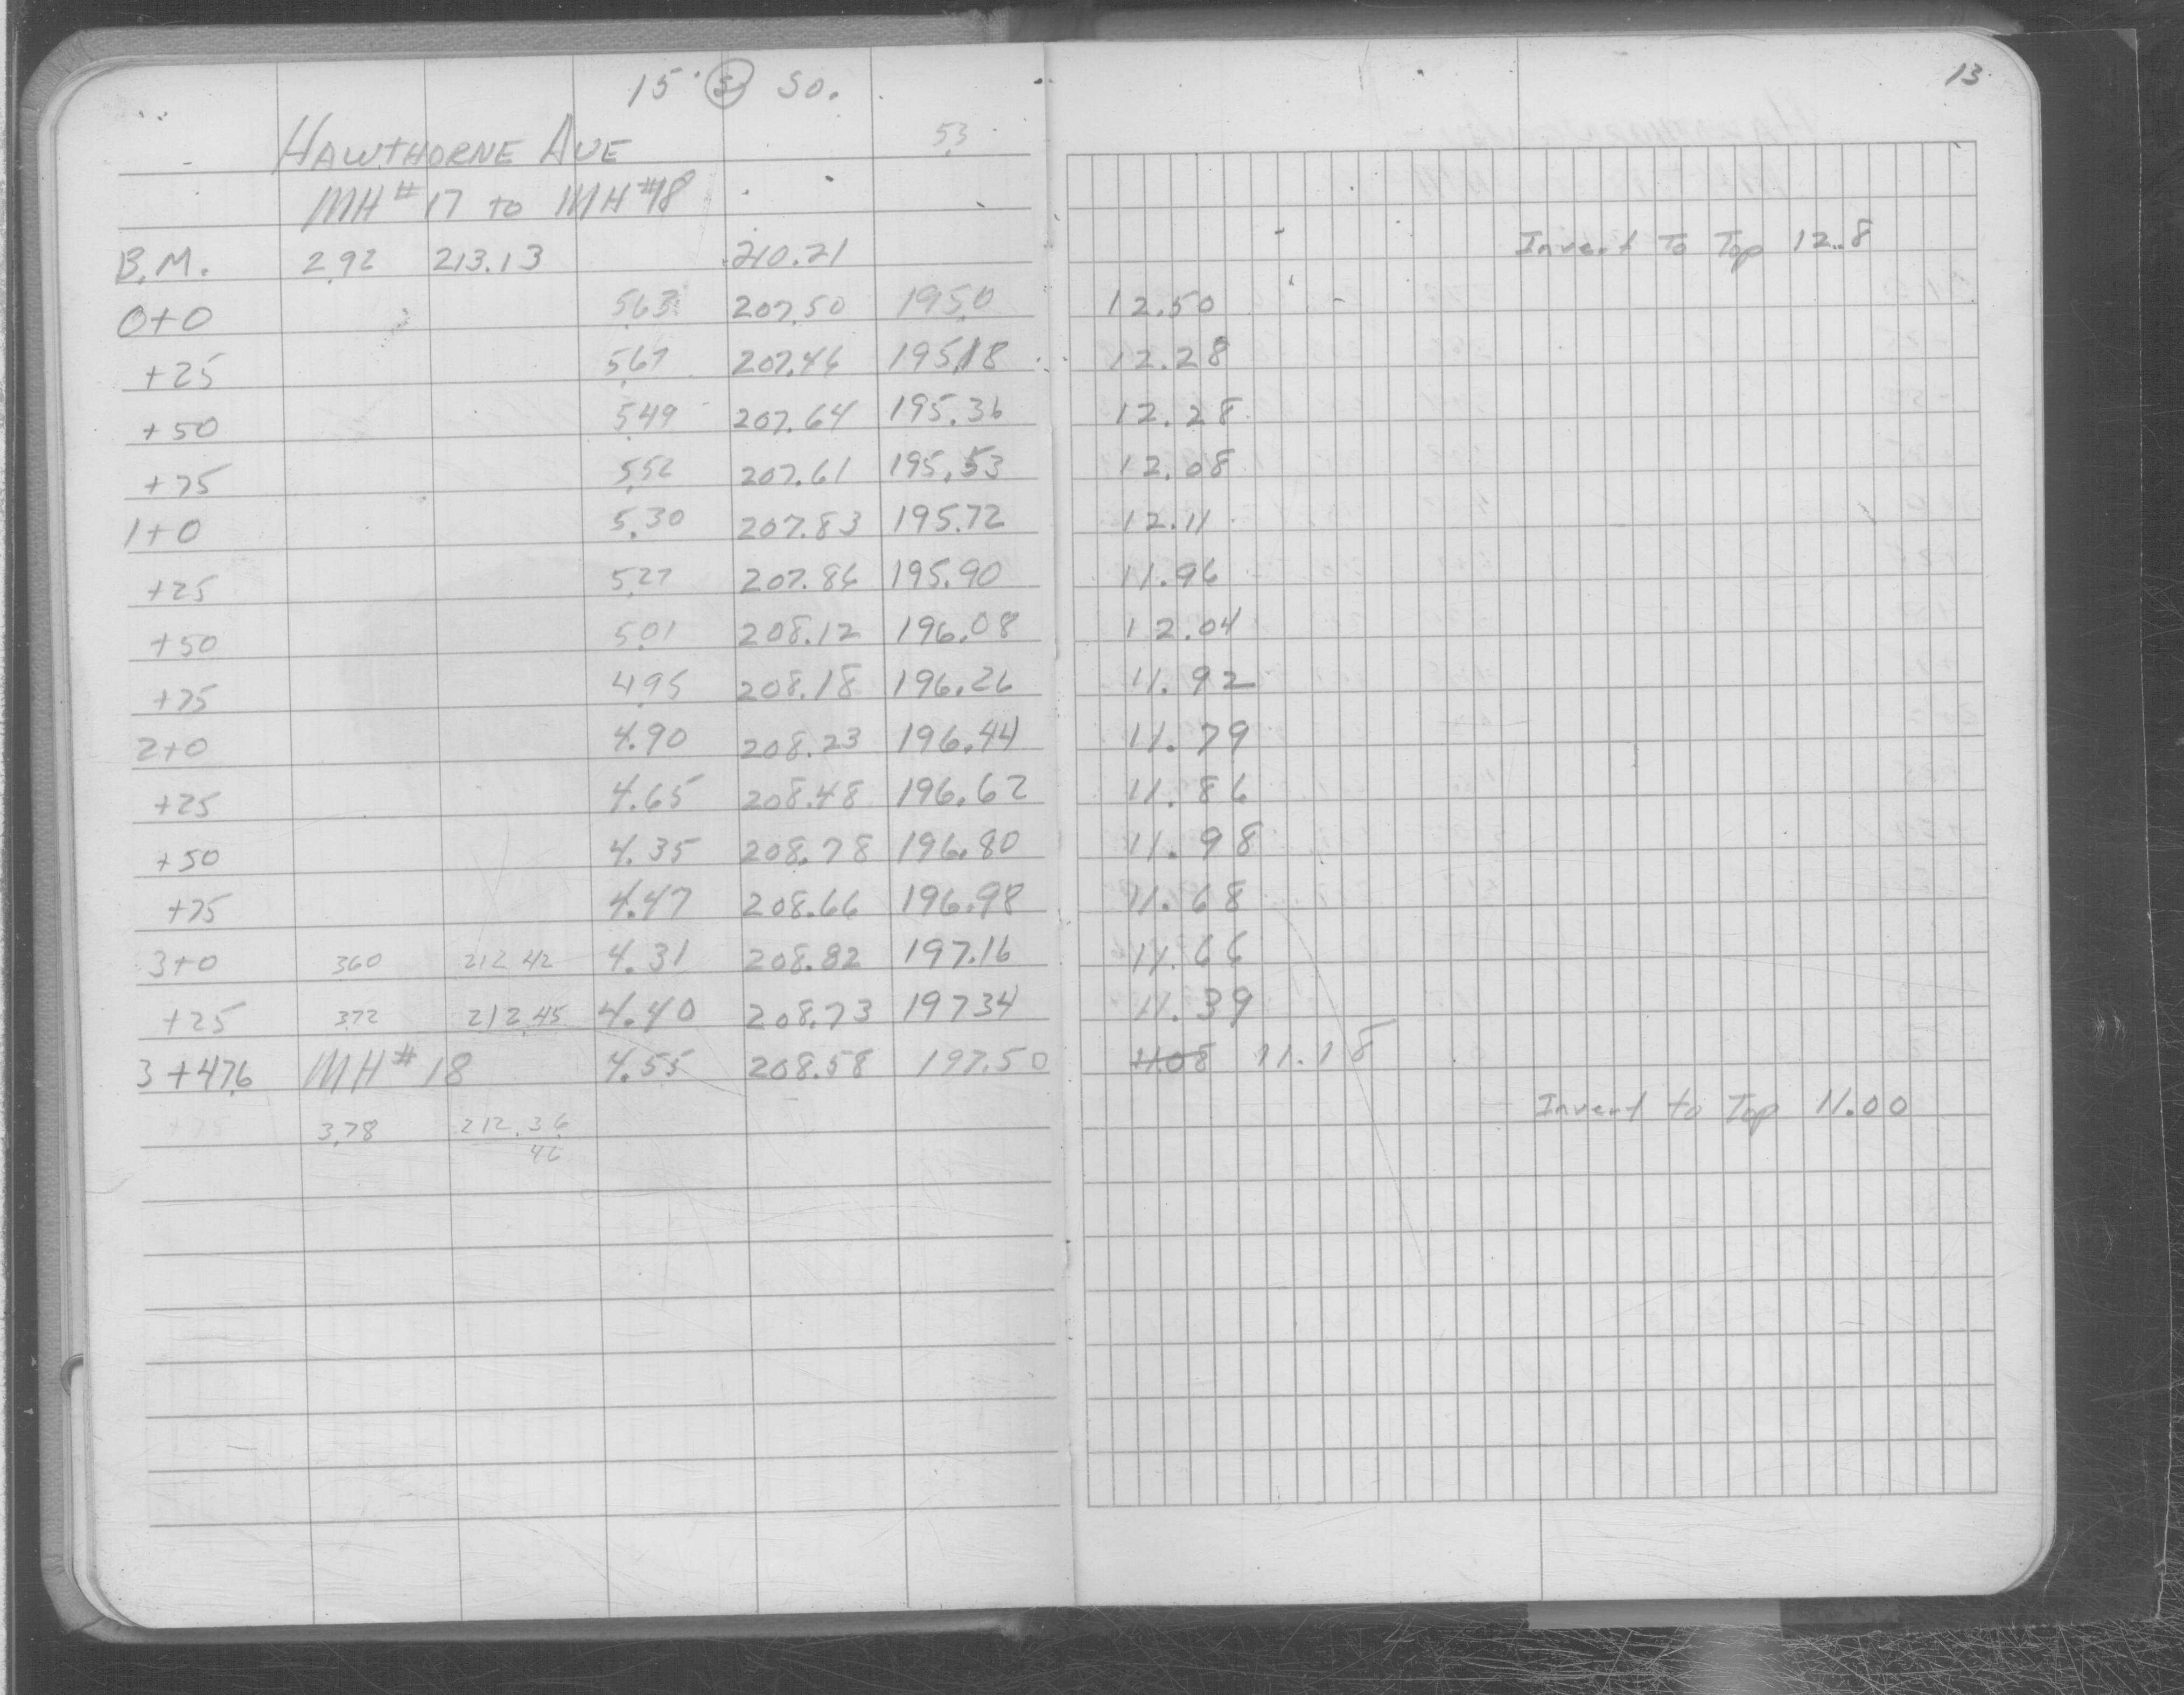 15' S So.
13
HAWTHORNE AVE 5.3
MH# 17 to MH#18
B.M. 2.92 213.13 210.21 Invert To Top 12.8
0+0 5.63 207.50 195.0 12.50
+25 5.67 207.46 195.18 12.28
+50 5.49 207.64 195.36 12.28
+75 5.52 207.61 195.53 12.08
1+0 5.30 207.83 195.72 12.11
+25 5.27 207.86 195.90 11.96
+50 5.01 208.12 196.08 12.04
+75 4.95 208.18 196.26 11.92
2+0 4.90 208.23 196.44 11.79
+25 4.65 208.48 196.62 11.86
+50 4.35 208.78 196.80 11.98
+75 4.47 208.66 196.98 11.68
3+0 360 212 42 4.31 208.82 197.16 11.66
+25 372 212.45 4.40 208.73 19734 11.39
3+47.6 MH# 18 4.55 208.58 197.50 11.08 11.18
Invert to Top 11.00
+75 3.78 212.36
46